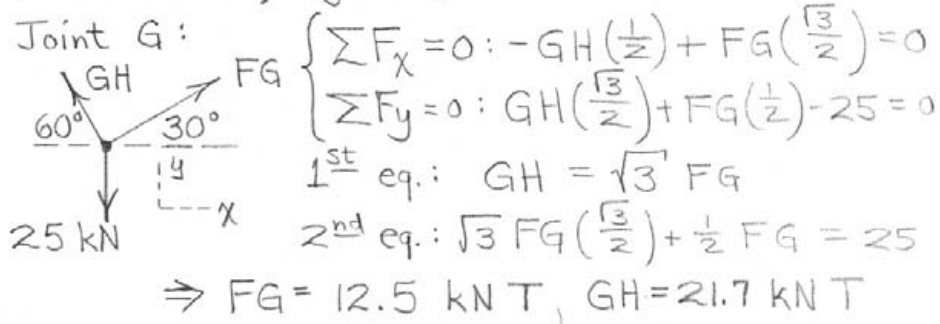 Joint G:
GH
FG
60°
30°
y
x
25 kN
ΣFx = 0 : -GH(1/2) + FG(√3/2) = 0
ΣFy = 0 : GH(√3/2) + FG(1/2) - 25 = 0
1st eq.: GH = √3 FG
2nd eq.: √3 FG(√3/2) + 1/2 FG = 25
⇒ FG = 12.5 kN T, GH = 21.7 kN T